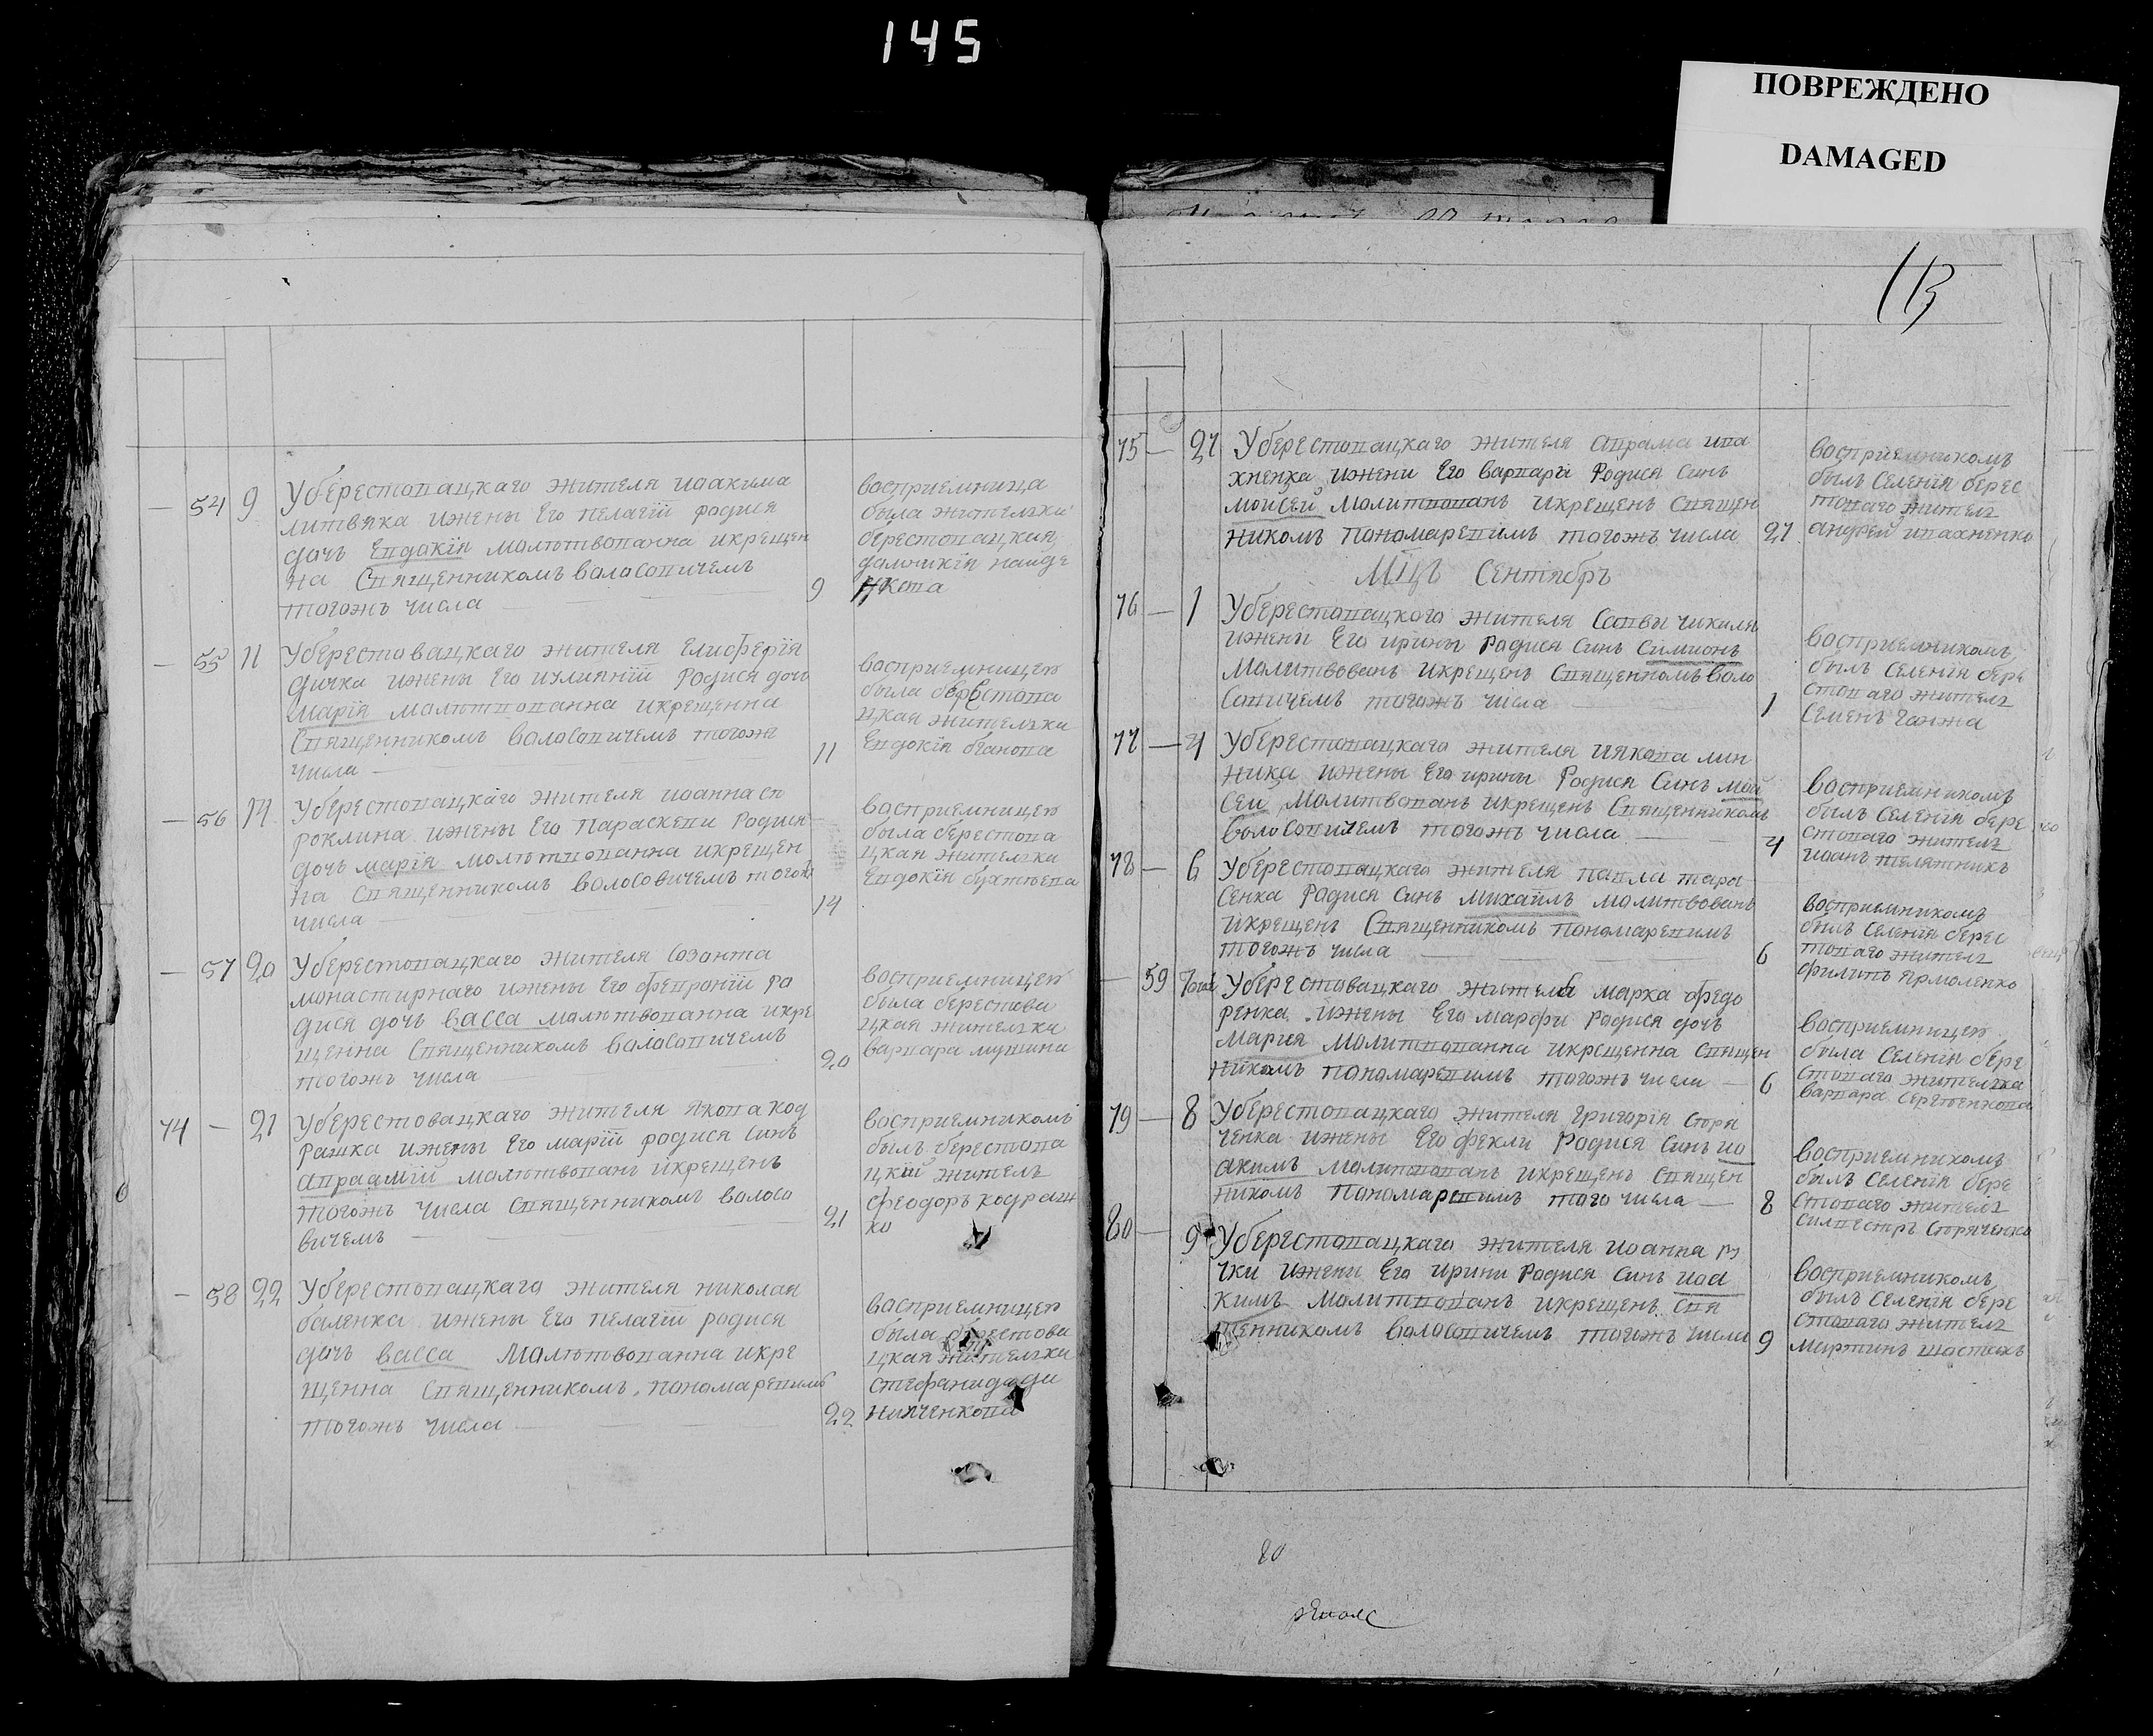 145
ПОВРЕЖДЕНО
DAMAGED
— 54 9 Уберестовацкаго жителя иоакима
литвяка ижены Его пелагіи родися
дочъ Евдокія молитвованна икрещен
на Священникомъ волосовичемъ
тогожъ числа — 9
восприемница
была жителка
берестовацкая
— 55 11 Уберестовацкаго жителя Елисферія
дичка ижены Его иулианіи Родися дочь
марія молитвованна икрещенна
Священникомъ волосовичемъ тогожъ
числа — 11
восприемницею
была берестова
цкая жителка
Евдокія
— 56 14 Уберестовацкаго жителя иоанна
ижены Его Параскеви Родися
дочъ марія молитвованна икрещен
на Священникомъ волосовичемъ тогожъ
числа — 14
восприемницею
была берестова
цкая жителка
Евдокія
— 57 20 Уберестовацкаго жителя Созонта
монастирнаго ижены Его февроніи Ро
дися дочъ васса молитвованна икре
щенна Священникомъ волосовичемъ
тогожъ числа — 20
восприемницею
была берестова
цкая жителка
варвара
74 — 21 Уберестовацкаго жителя якова код
рашка ижены Его маріи родися Синъ
авраамій молитвованъ икрещенъ
тогожъ числа Священникомъ волосо
вичемъ — 21
восприемникомъ
былъ берестова
цкій жителъ
феодоръ кодраш
ко
— 58 22 Уберестовацкаго жителя николая
баленка ижены Его пелагіи родися
дочъ васса молитвованна икре
щенна Священникомъ пономаревимъ
тогожъ числа — 22
восприемницею
была берестова
цкая жителка
стефанида
113
75 — 27 Уберестовацкаго жителя аврама ива
хненка ижени Его варвари Родися Синъ
мойсей молитвованъ икрещенъ Священ
никомъ пономаревимъ тогожъ числа 27
восприемникомъ
былъ Селенія берес
товаго жителъ
андрей ивахненко
Мцъ Сентябръ
76 — 1 Уберестовацкаго жителя Саввы чикиля
ижены Его ирины Радися Синъ Симионъ
молитвованъ икрещенъ Священномъ воло
совичемъ тогожъ числа — 1
восприемникомъ
былъ Селенія бере
стоваго жителъ
Семенъ ганжа
77 — 4 Уберестовацкаго жителя иякова лин
ника ижены Его ирины Родися Синъ мой
сеи молитвованъ икрещенъ Священникомъ
волосовичемъ тогожъ числа — 4
восприемникомъ
былъ Селенія бере
стоваго жителъ
иоанъ телятникъ
78 — 6 Уберестовацкаго жителя павла тара
сенка Родися Синъ михаилъ молитвованъ
икрещенъ Священникомъ пономаревимъ
тогожъ числа — 6
восприемникомъ
былъ Селенія берес
товаго жителъ
филипъ Ярмоленко
— 59 Уберестовацкаго жителя марка федо
ренка ижены Его марфи родися дочъ
Мария молитвованна икрещенна Священ
никомъ пономаревимъ тогожъ числа — 6
восприемницею
была Селенія бере
стоваго жителка
варвара Сергиенкова
79 — 8 Уберестовацкаго жителя григорія Сторя
ченка ижены Его фекли Родися Синъ ио
акимъ молитвованъ икрещенъ Священ
никомъ пономаревимъ того числа — 8
восприемникомъ
былъ Селенія бере
стоваго жителъ
силвестръ Сторяченко
80 — 9 Уберестовацкаго жителя иоанна
чки ижени Его ирини Родися Синъ иоа
кимъ молитвованъ икрещенъ Свя
щенникомъ волосовичемъ тогожъ числа 9
восприемникомъ
былъ Селенія бере
стоваго жителъ
мартинъ шостакъ
80